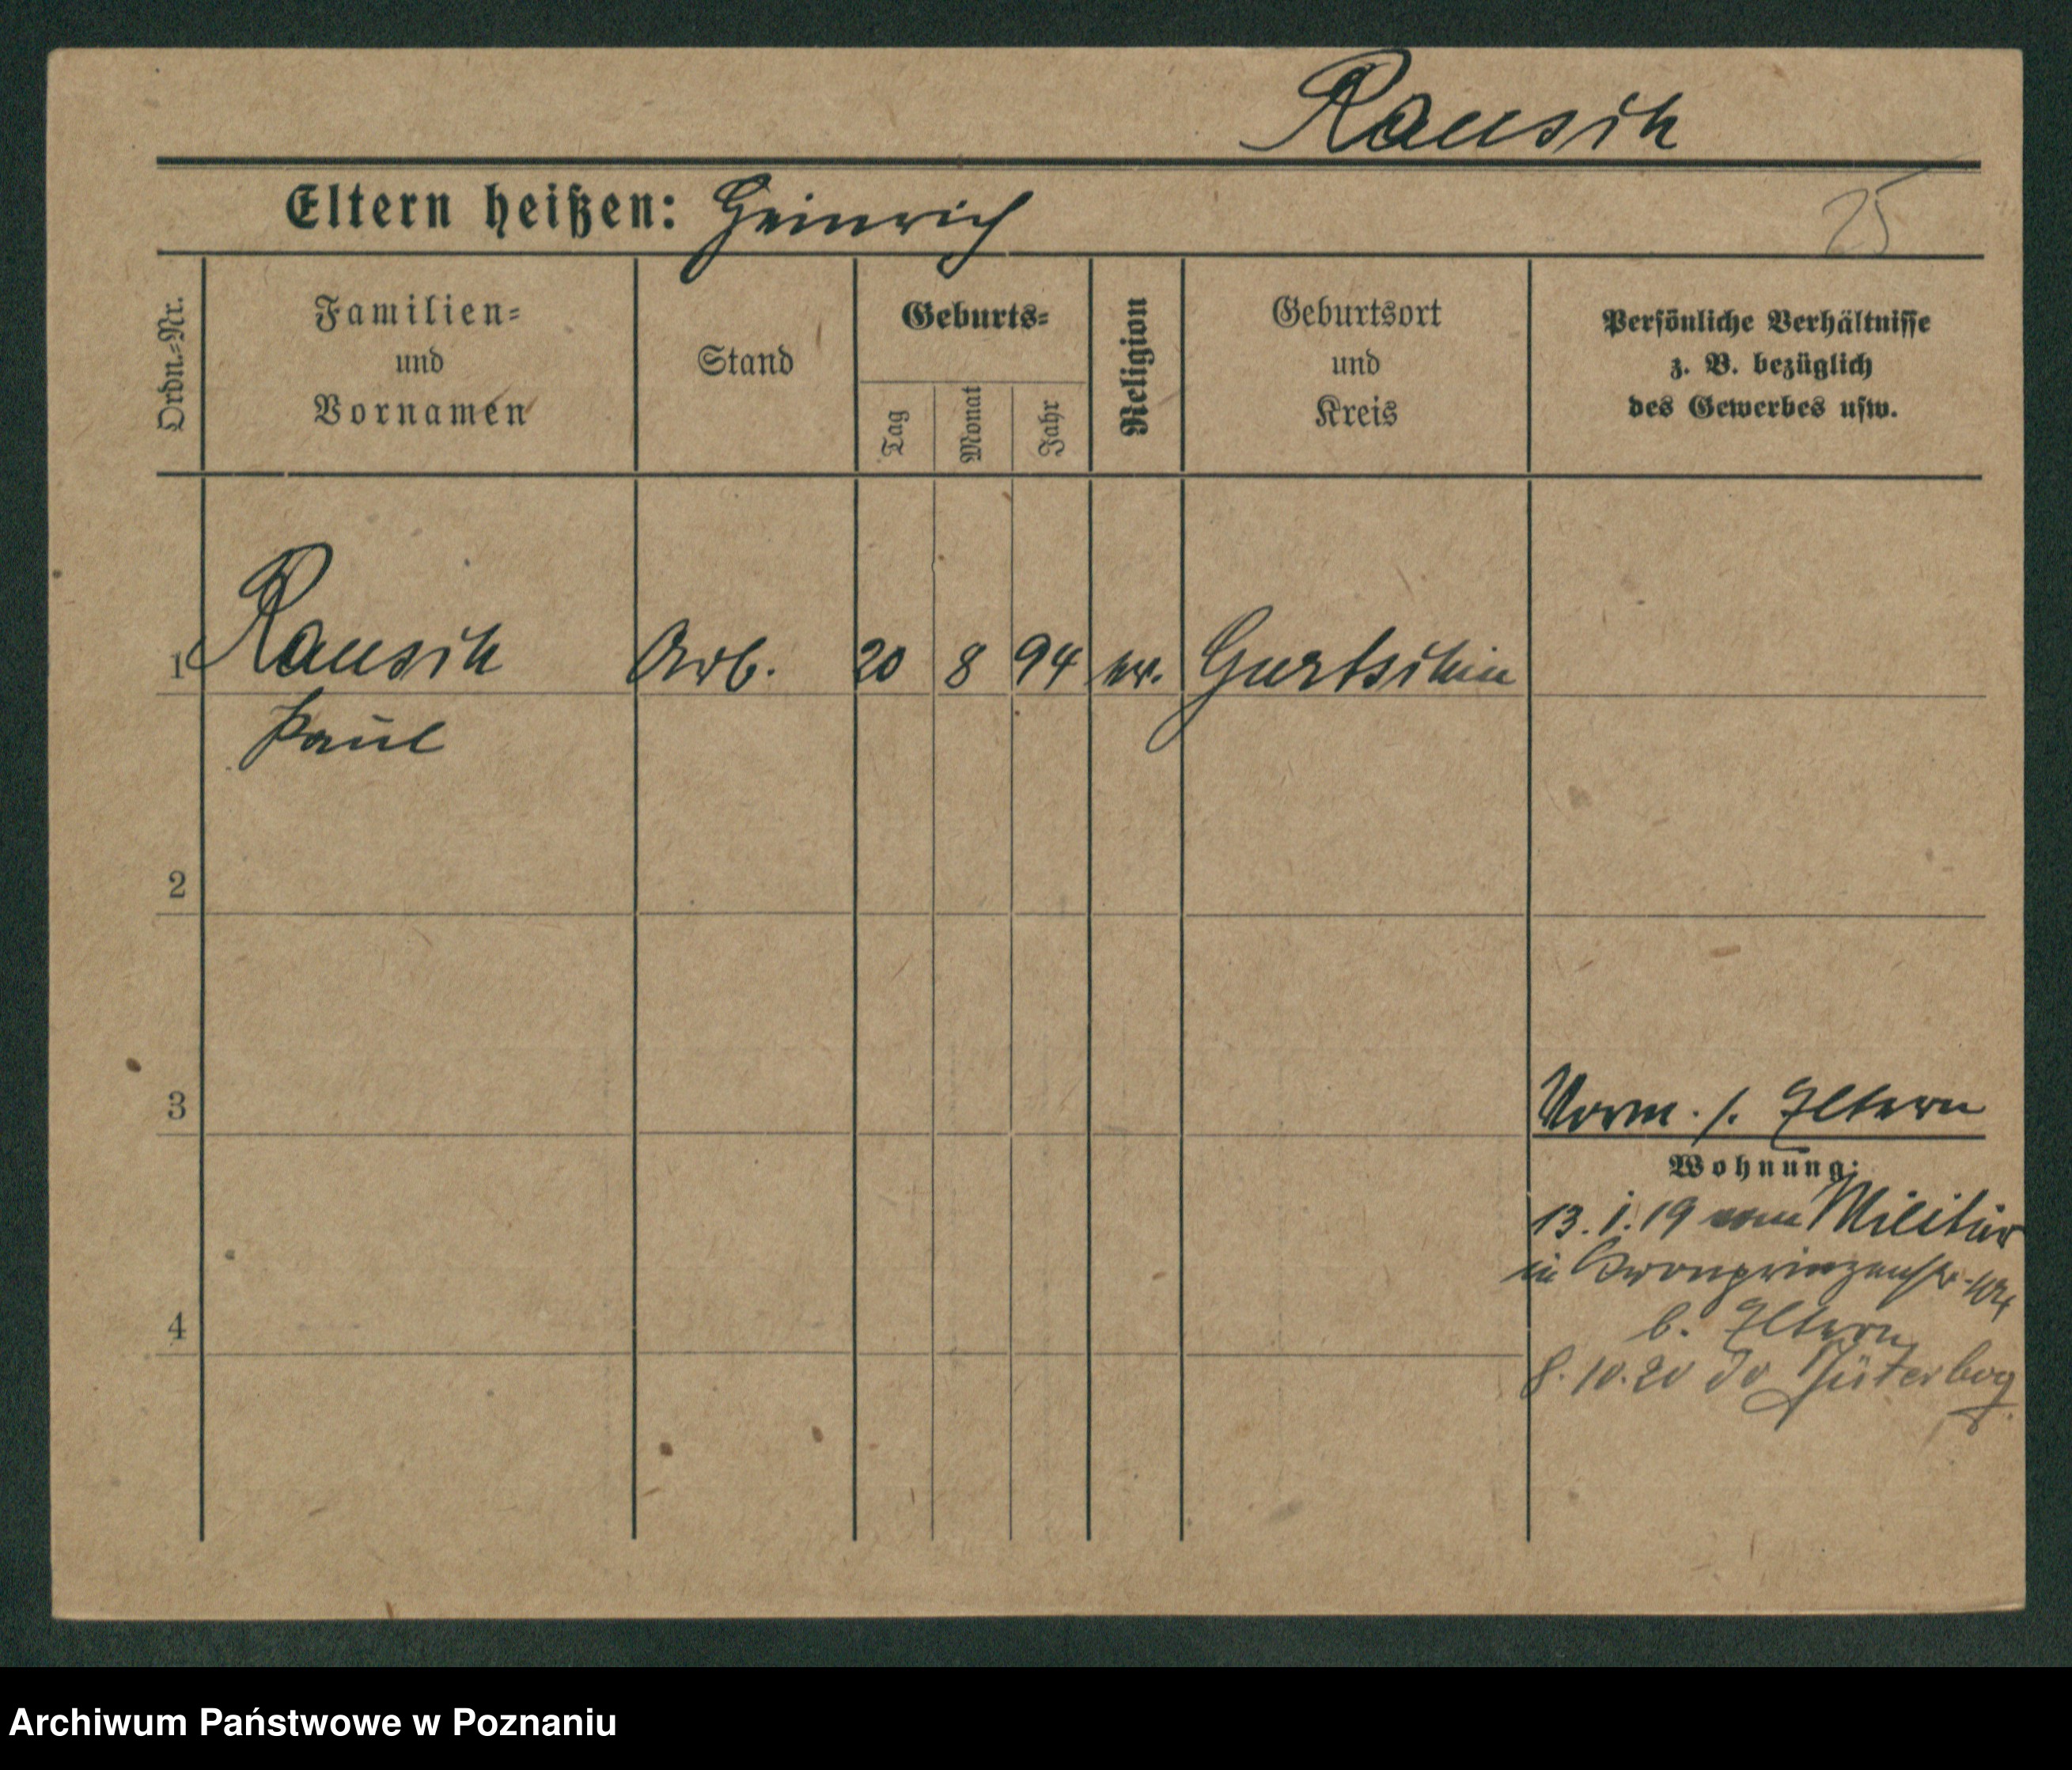 Rausch
Eltern heißen: Heinrich
25
Ordn.-Nr.
Familien-
und
Vornamen
Stand
Geburts-
Tag
Monat
Jahr
Religion
Geburtsort
und
Kreis
Persönliche Verhältnisse
z. B. bezüglich
des Gewerbes usw.
1 Rausch Arb. 20 8 94 ev. Gurtschin
Paul
2
3
Vorm. s. Eltern
Wohnung:
13. 1. 19 vom Militär
in Kronprinzenstr.
4
b. Eltern
8. 10. 20 Jüterbog
Archiwum Państwowe w Poznaniu